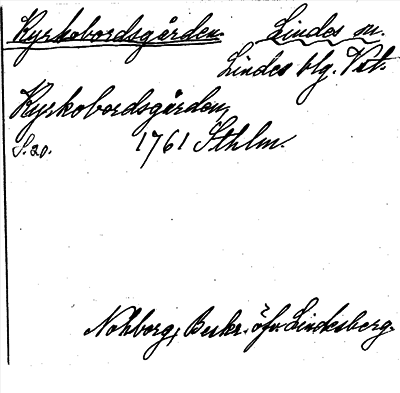 Kyrkobordsgården. Lindes sn.
Lindes blg. Vstm.
Kyrkobordsgården,
S. 20. 1761 Sthlm.
Nohborg, Beskr. öfv. Lindesberg.